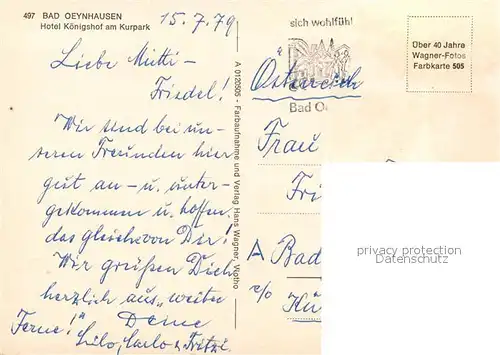 497 BAD OEYNHAUSEN
Hotel Königshof am Kurpark
15.7.79
Liebe Mutti -
Friedel!
Wir sind bei un-
seren Freunden hier
gut an- u. unter-
gekommen u. hoffen
das gleiche von Dir!
Wir grüßen Dich
herzlich aus "weiter
Ferne!" Deine
Lilo, Carlo & Fritzi.
A 012/505 - Farbaufnahme und Verlag Hans Wagner, Vlotho
sich wohlfühl
Bad O
Über 40 Jahre
Wagner-Fotos
Farbkarte 505
Österreich
Frau
Fri
A Bad
c/o Kü
privacy protection
Datenschutz